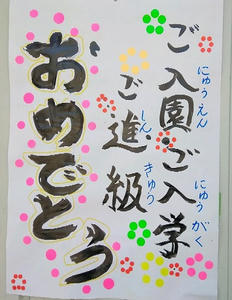 ご入園・ご入学
にゅうえん にゅうがく
ご進級
しんきゅう
おめでとう